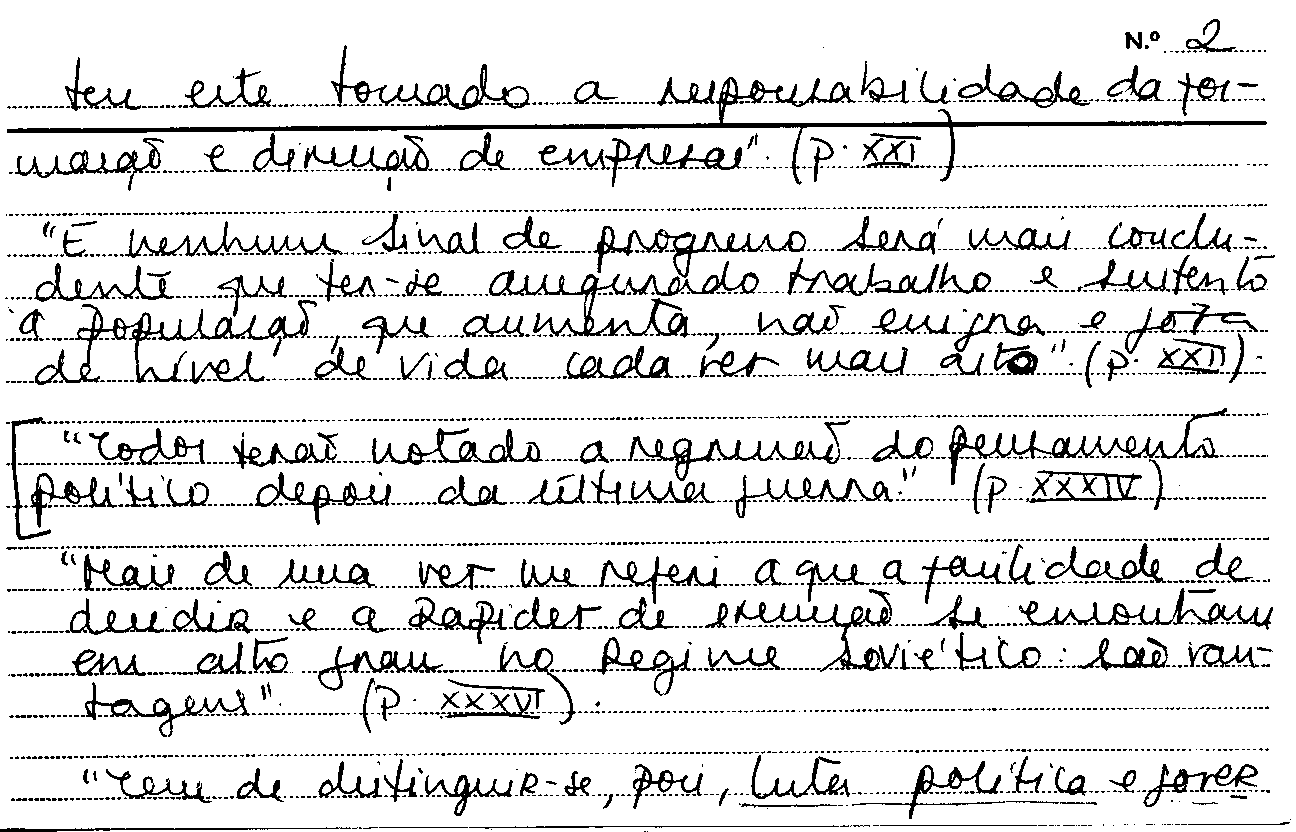 N.º 2
ter este tomado a responsabilidade da for-
mação e direcção de empresas". (p. XXI)
"E nenhum sinal de progresso será mais conclu-
dente que ter-se assegurado trabalho e sustento
à população, que aumenta, não emigra e goza
de nível de vida cada vez mais alto". (p. XXII).
"Todos terão notado a regressão do pensamento
político depois da última guerra." (p. XXXIV)
"Mais de uma vez me referi a que a facilidade de
decidir e a rapidez de execução se encontram
em alto grau no Regime Soviético: são van-
tagens". (p. XXXVI).
"Tem de distinguir-se, pois, luta política e gover